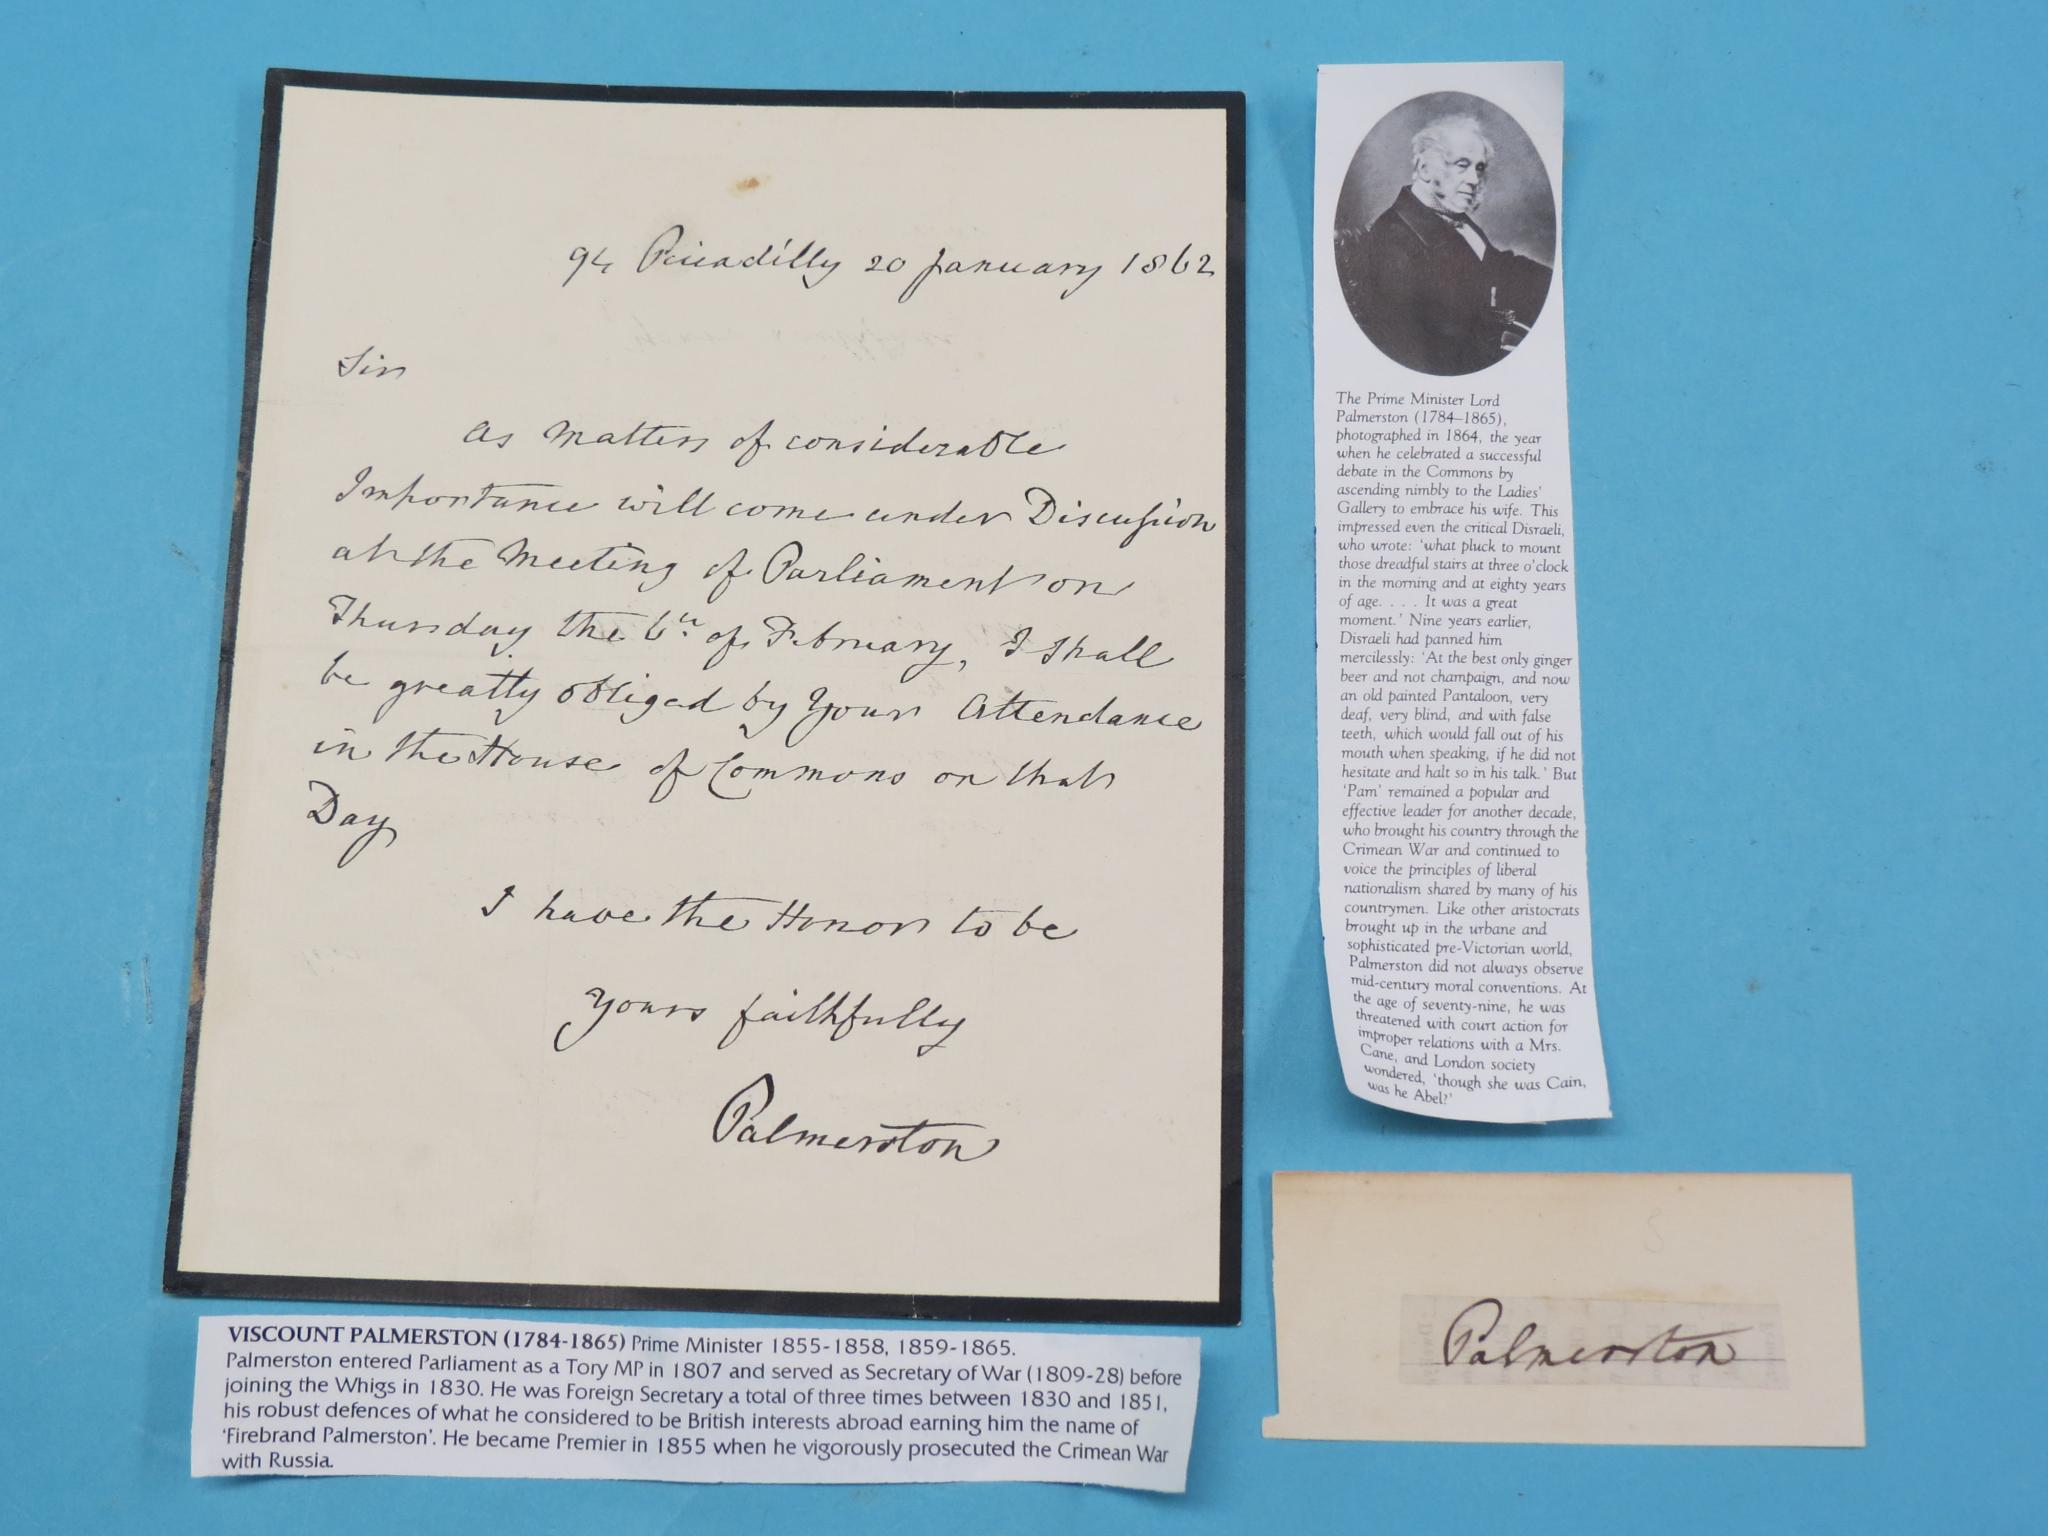 94 Piccadilly 20 January 1862
Sir
As Matters of considerable
Importance will come under Discussion
at the Meeting of Parliament on
Thursday the 6th of February, I shall
be greatly obliged by Your Attendance
in the House of Commons on that
Day
I have the Honor to be
Yours faithfully
Palmerston
The Prime Minister Lord
Palmerston (1784–1865),
photographed in 1864, the year
when he celebrated a successful
debate in the Commons by
ascending nimbly to the Ladies'
Gallery to embrace his wife. This
impressed even the critical Disraeli,
who wrote: 'what pluck to mount
those dreadful stairs at three o'clock
in the morning and at eighty years
of age. . . . It was a great
moment.' Nine years earlier,
Disraeli had panned him
mercilessly: 'At the best only ginger
beer and not champaign, and now
an old painted Pantaloon, very
deaf, very blind, and with false
teeth, which would fall out of his
mouth when speaking, if he did not
hesitate and halt so in his talk.' But
'Pam' remained a popular and
effective leader for another decade,
who brought his country through the
Crimean War and continued to
voice the principles of liberal
nationalism shared by many of his
countrymen. Like other aristocrats
brought up in the urbane and
sophisticated pre-Victorian world,
Palmerston did not always observe
mid-century moral conventions. At
the age of seventy-nine, he was
threatened with court action for
improper relations with a Mrs.
Cane, and London society
wondered, 'though she was Cain,
was he Abel?'
VISCOUNT PALMERSTON (1784-1865) Prime Minister 1855-1858, 1859-1865.
Palmerston entered Parliament as a Tory MP in 1807 and served as Secretary of War (1809-28) before
joining the Whigs in 1830. He was Foreign Secretary a total of three times between 1830 and 1851,
his robust defences of what he considered to be British interests abroad earning him the name of
'Firebrand Palmerston'. He became Premier in 1855 when he vigorously prosecuted the Crimean War
with Russia.
Palmerston